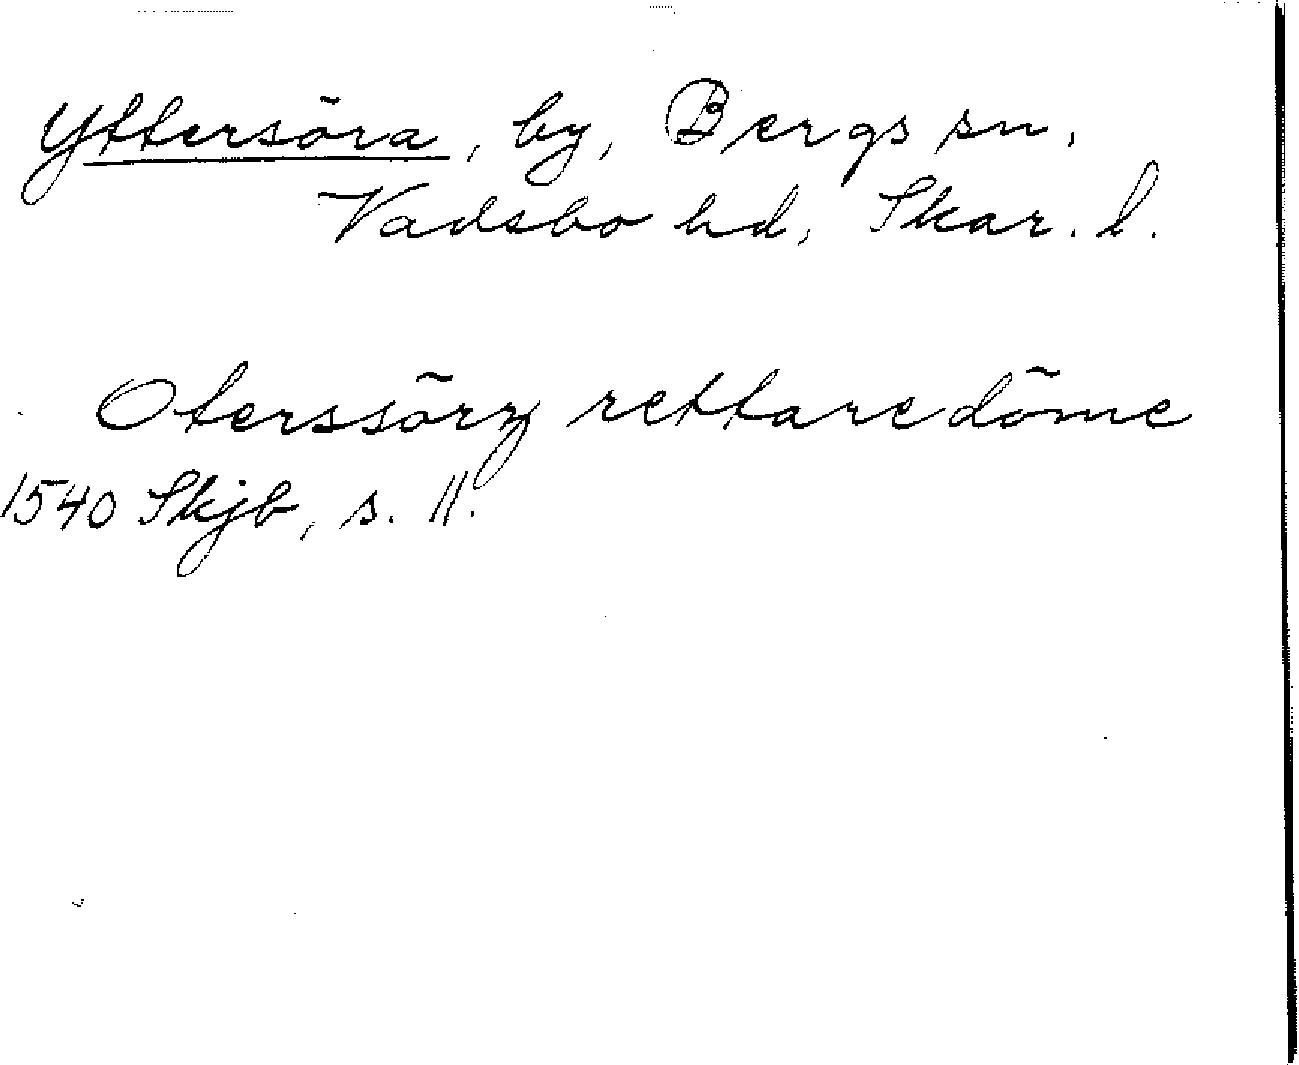 Yttersöra, by, Bergs sn,
Vadsbo hd, Skar. l.
Oterssöry rettaredöme
1540 Skjb, s. 11.